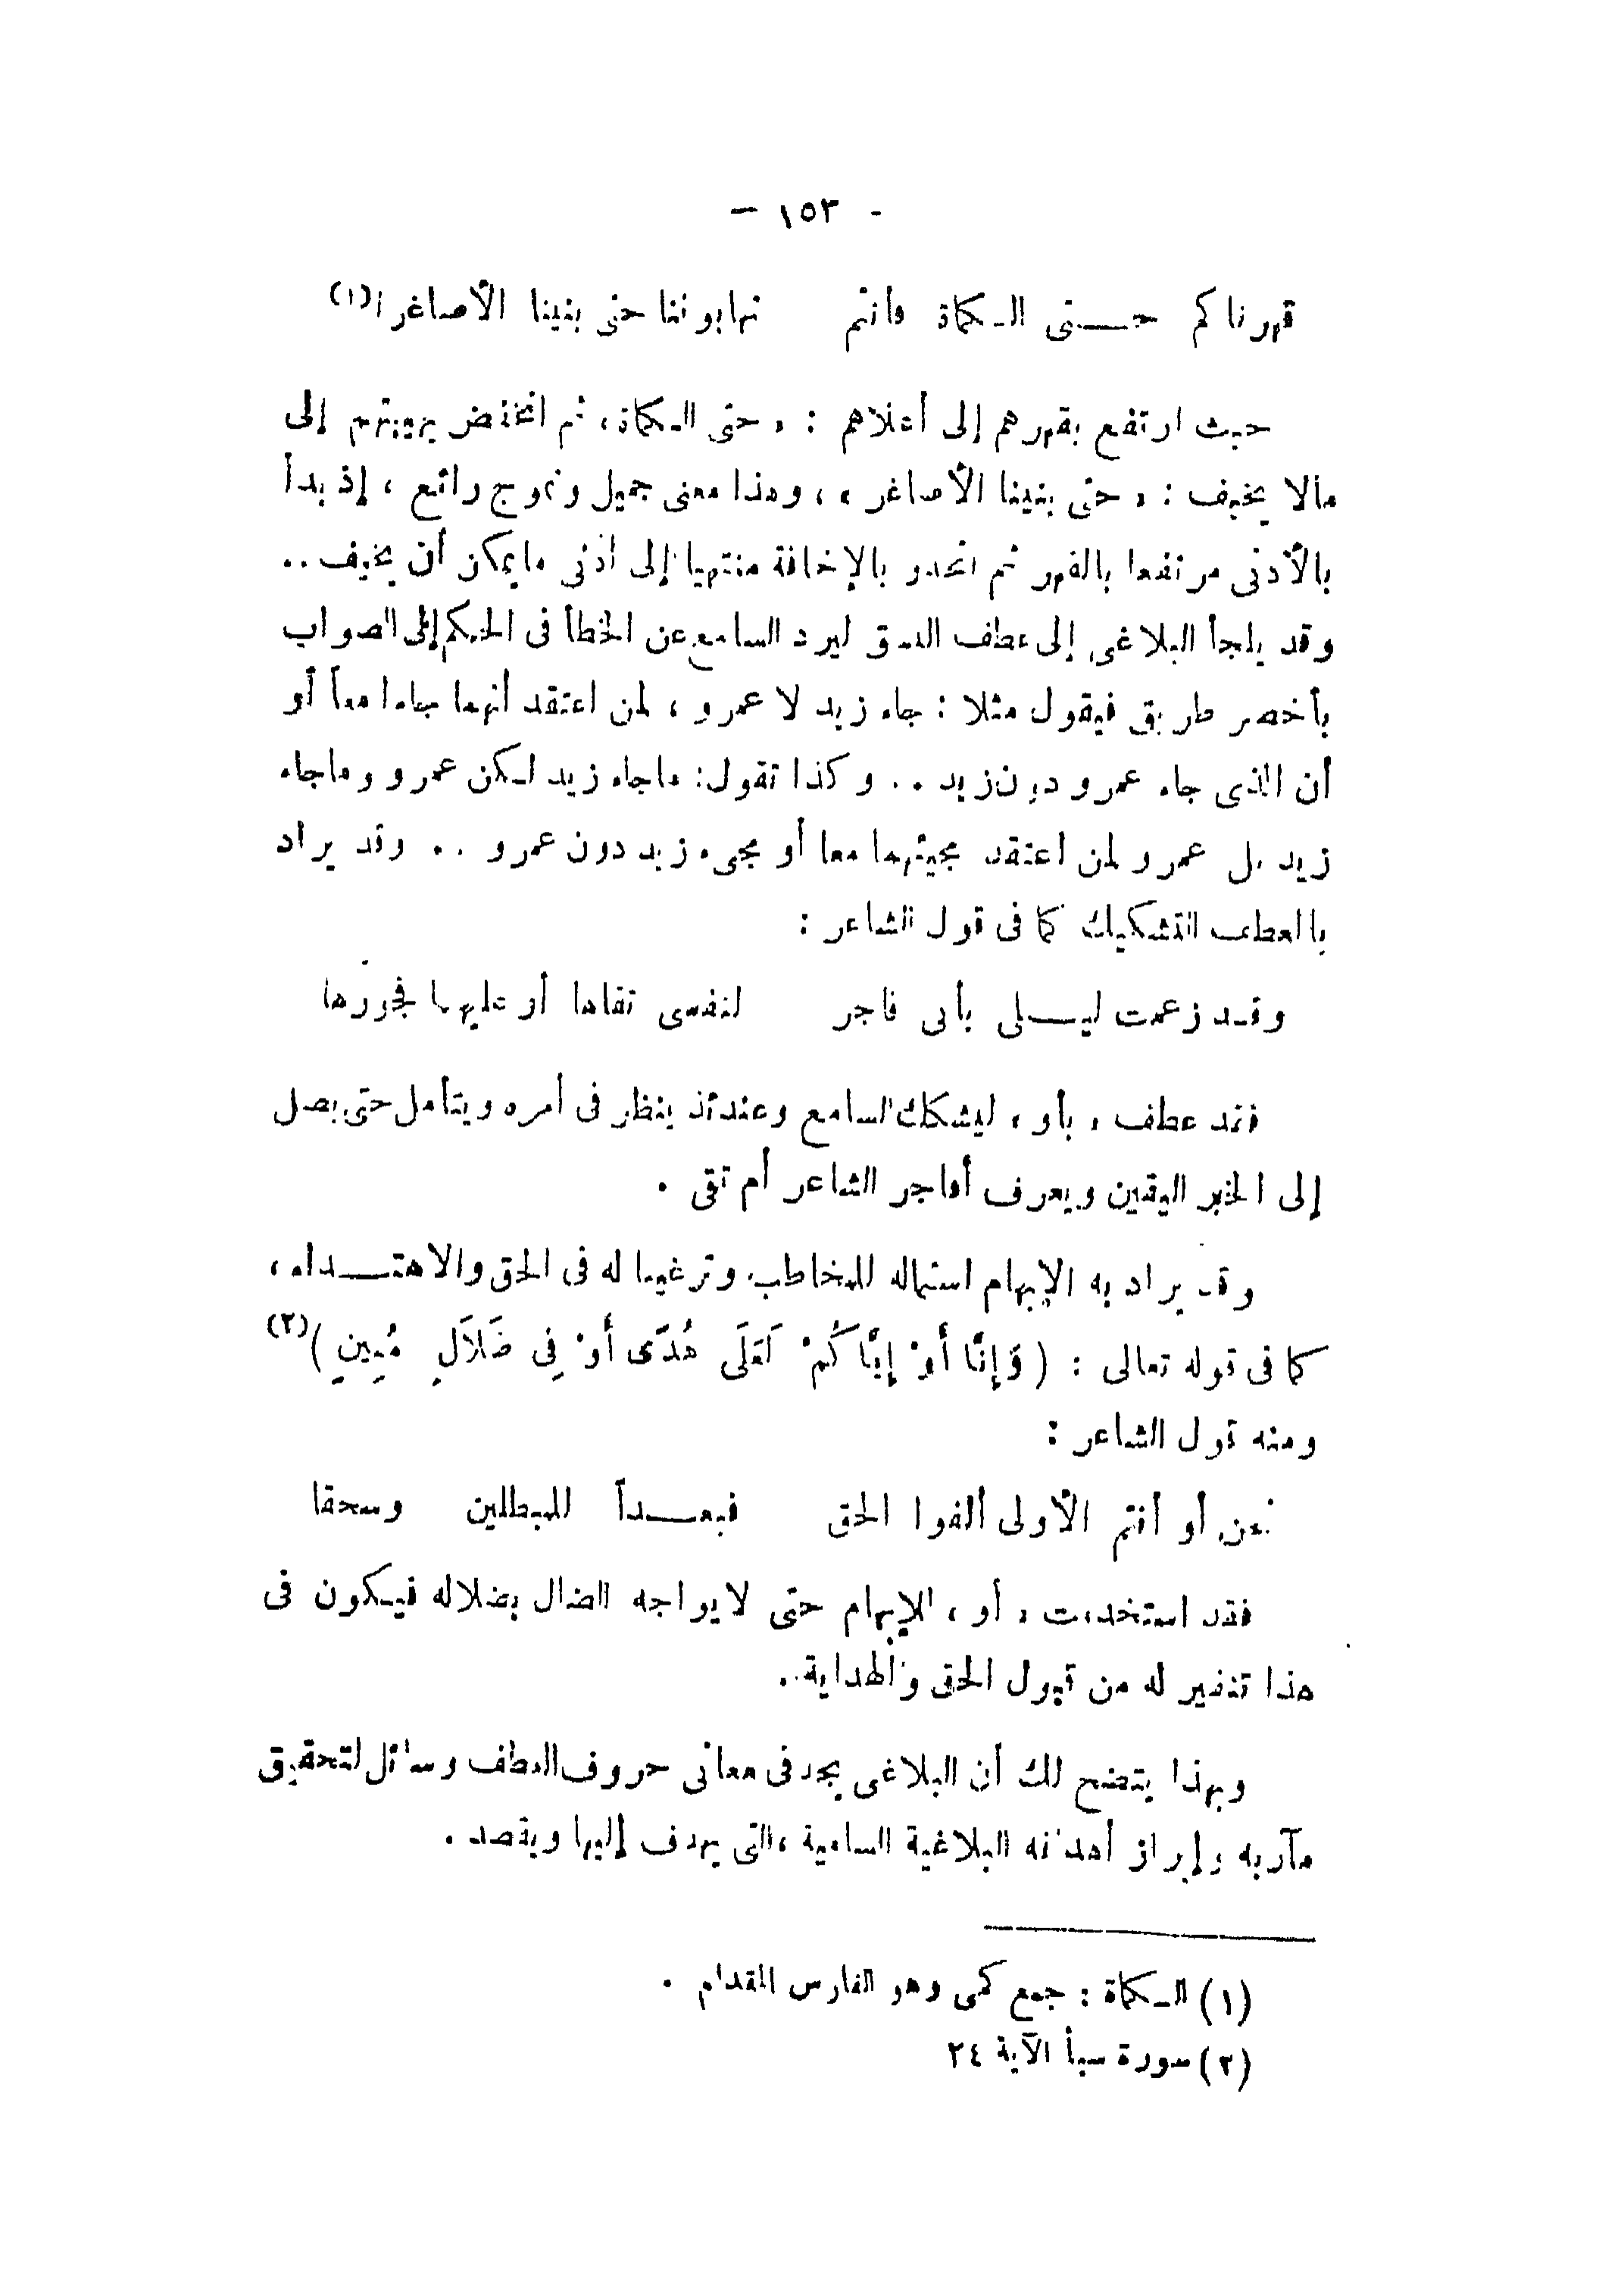 - ١٥٣ -
قهرناكم حتى الكماة فأنتم تهابوننا حتى بنينا الأصاغرا (١)
حيث ارتفع بقهرهم إلى أعلاهم : « حتى الكماة » ثم انخفض بهيبتهم إلى
مالا يخيف : « حتى بنينا الأصاغر » ، وهذا معنى جميل ونموج رائع ، إذ بدأ
بالأدنى مرتفعا بالقهر ثم انحدر بالإخافة منتهيا إلى أدنى ما يمكن أن يخيف ..
وقد يلجأ البلاغى إلى عطف النسق ليرد السامع عن الخطأ فى الحكم إلى الصواب
بأخصر طريق فيقول مثلا : جاء زيد لا عمرو ، لمن اعتقد أنهما جاءا معاً أو
أن الذى جاء عمرو دون زيد .. وكذا تقول : ماجاء زيد لكن عمرو وماجاء
زيد بل عمرو لمن اعتقد مجيئهما معا أو مجىء زيد دون عمرو .. وقد يراد
بالعطف التشكيك كما فى قول الشاعر :
وقد زعمت ليلى بأنى فاجر لنفسى تقاها أو عليها فجورها
فقد عطف « بأو » ليشكك السامع وعندئذ ينظر فى أمره ويتأمل حتى يصل
إلى الخبر اليقين ويعرف أفاجر الشاعر أم تقى .
وقد يراد به الإبهام استماله للمخاطب وترغيبا له فى الحق والاهتداء ،
كما فى قوله تعالى : ( وَإِنَّا أَوْ إِيَّاكُمْ لَعَلَى هُدًى أَوْ فِى ضَلاَلٍ مُبِينٍ ) (٢)
ومنه قول الشاعر :
نحن أو أنتم الأولى ألفوا الحق فبعداً للمبطلين وسحقا
فقد استخدمت « أو » للإبهام حتى لا يواجه الضال بضلاله فيكون فى
هذا تنفير له من قبول الحق والهداية .
وبهذا يتضح لك أن البلاغى يجد فى معانى حروف العطف وسائل لتحقيق
مآربه وإبراز أهدافه البلاغية السامية ، التى يهدف إليها ويقصد .
(١) الكماة : جمع كمى وهو الفارس المقدام .
(٢) سورة سبأ الآية ٢٤